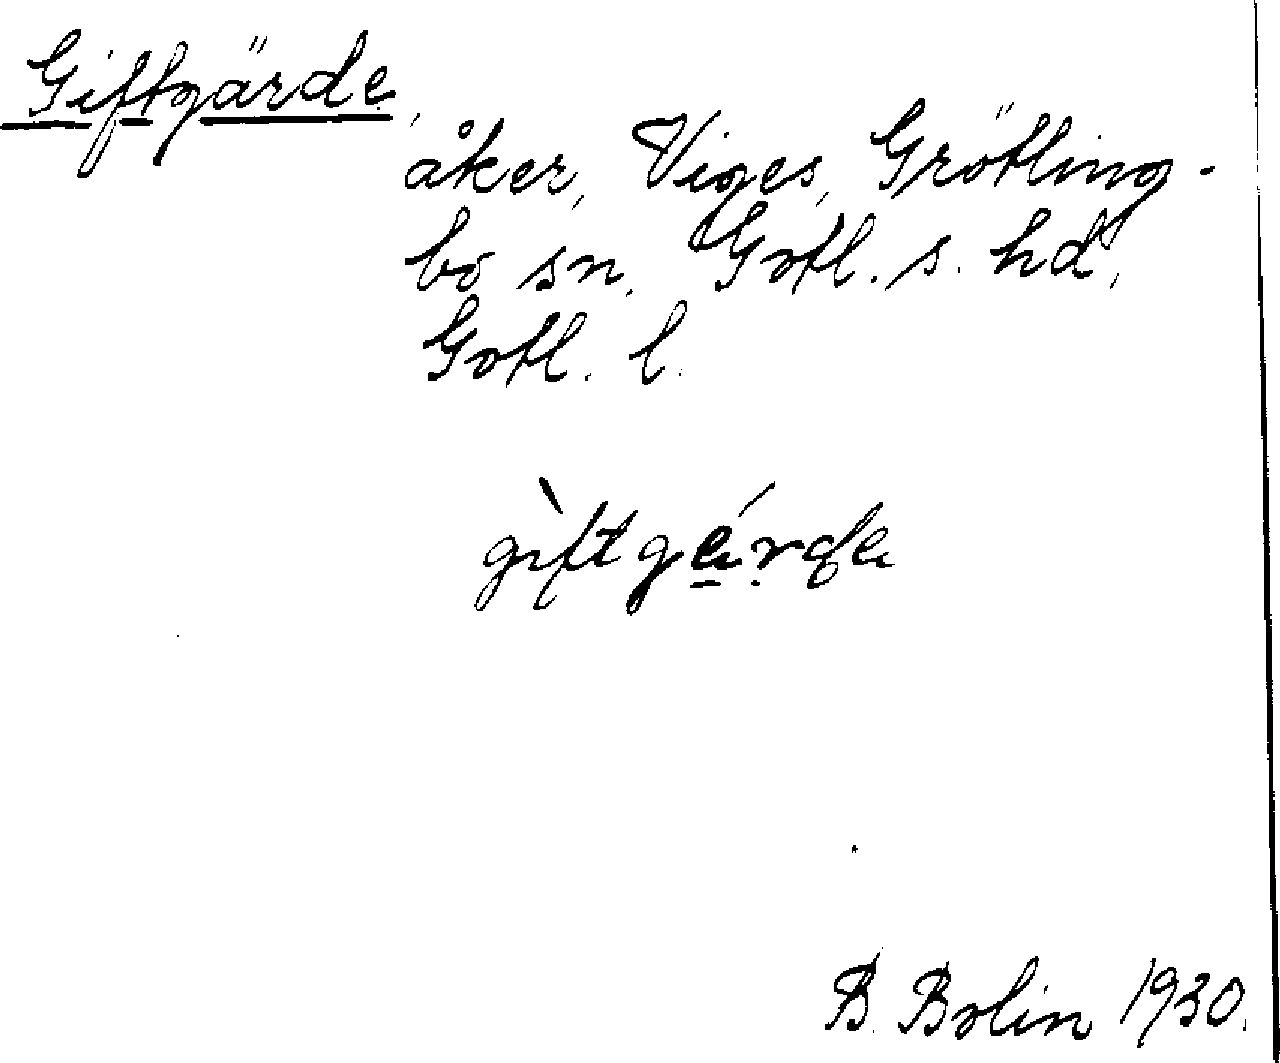 Giftgärde
åker, Viges, Grötling-
bo sn, Gotl. s. hd,
Gotl. l.
B. Bolin 1930.